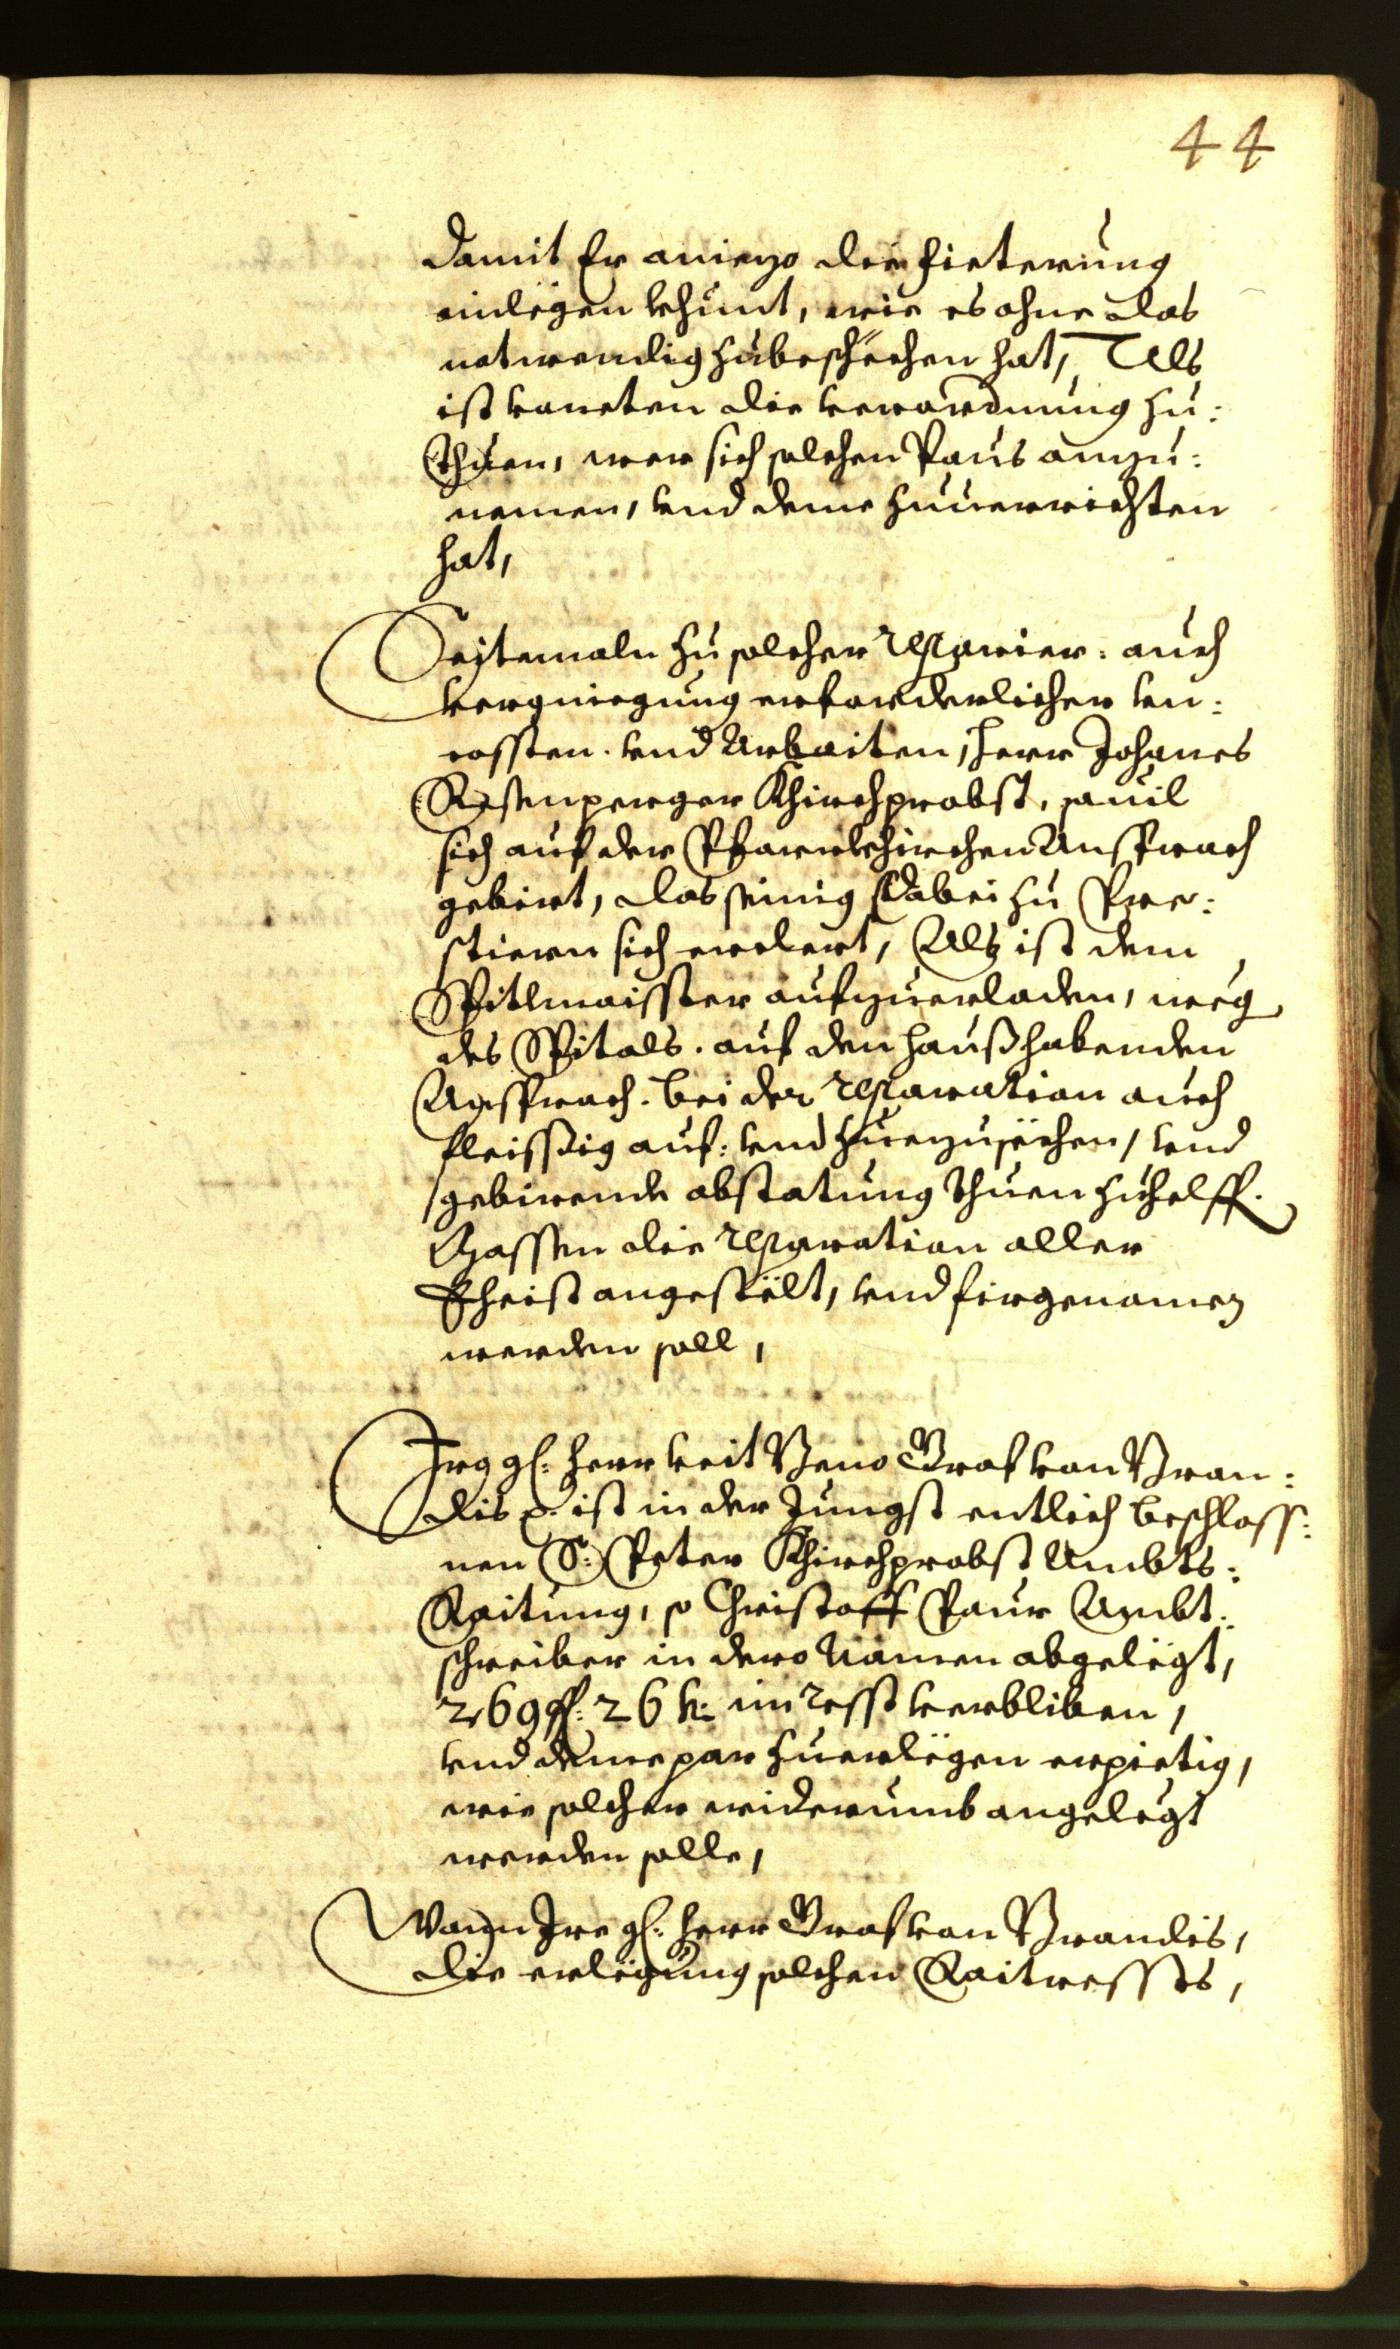 44
damit Er aniezo die fieterung
einlegen khunt, wie es ohne das
notwendig zubeschechen hat, Als
ist voneten die verordnung zu:
thuen, wer sich solchen Paus anzu:
nemen, vnd deme zuuerrichten
hat,
Seitemaln zu solcher reparier: auch
vergniegung erforderlicher vn:
cossten. vnd Arbaiten, herr Johanes
Rosenperger Khirchprobst, souil
sich auf der Pfarrkhirchen Ansprach
gebirt, das seinig dabei zu Pre:
stiern sich ercleert, Als ist dem
Spitlmaisster aufzuerladen, weg
des Spitals. auf den hauß habenden
Ansprach. bei der reparation auch
fleissig auf: vnd zuezusechen, vnd
gebirende abstatung thuen zuhelff.
Massen die reparation aller
Eheist angestelt, vnd firgenomen
werden soll,
Irer gl: herr veit Beno Graf von Bran:
dis p. ist in der Jungst entlich beschloss:
nen S: Peter Khirchprobst Ambts:
Raitung, so Christoff Paur Ambt:
schreiber in dero Namen abgelegt,
269 f: 26 k: im resst verbliben,
vnd deme par zuerlegen erpietig,
wie solcher widerumb angelegt
werden solle,
Wann Ire gl: herr Graf von Brandis,
die erlegung solchen Raitressts,